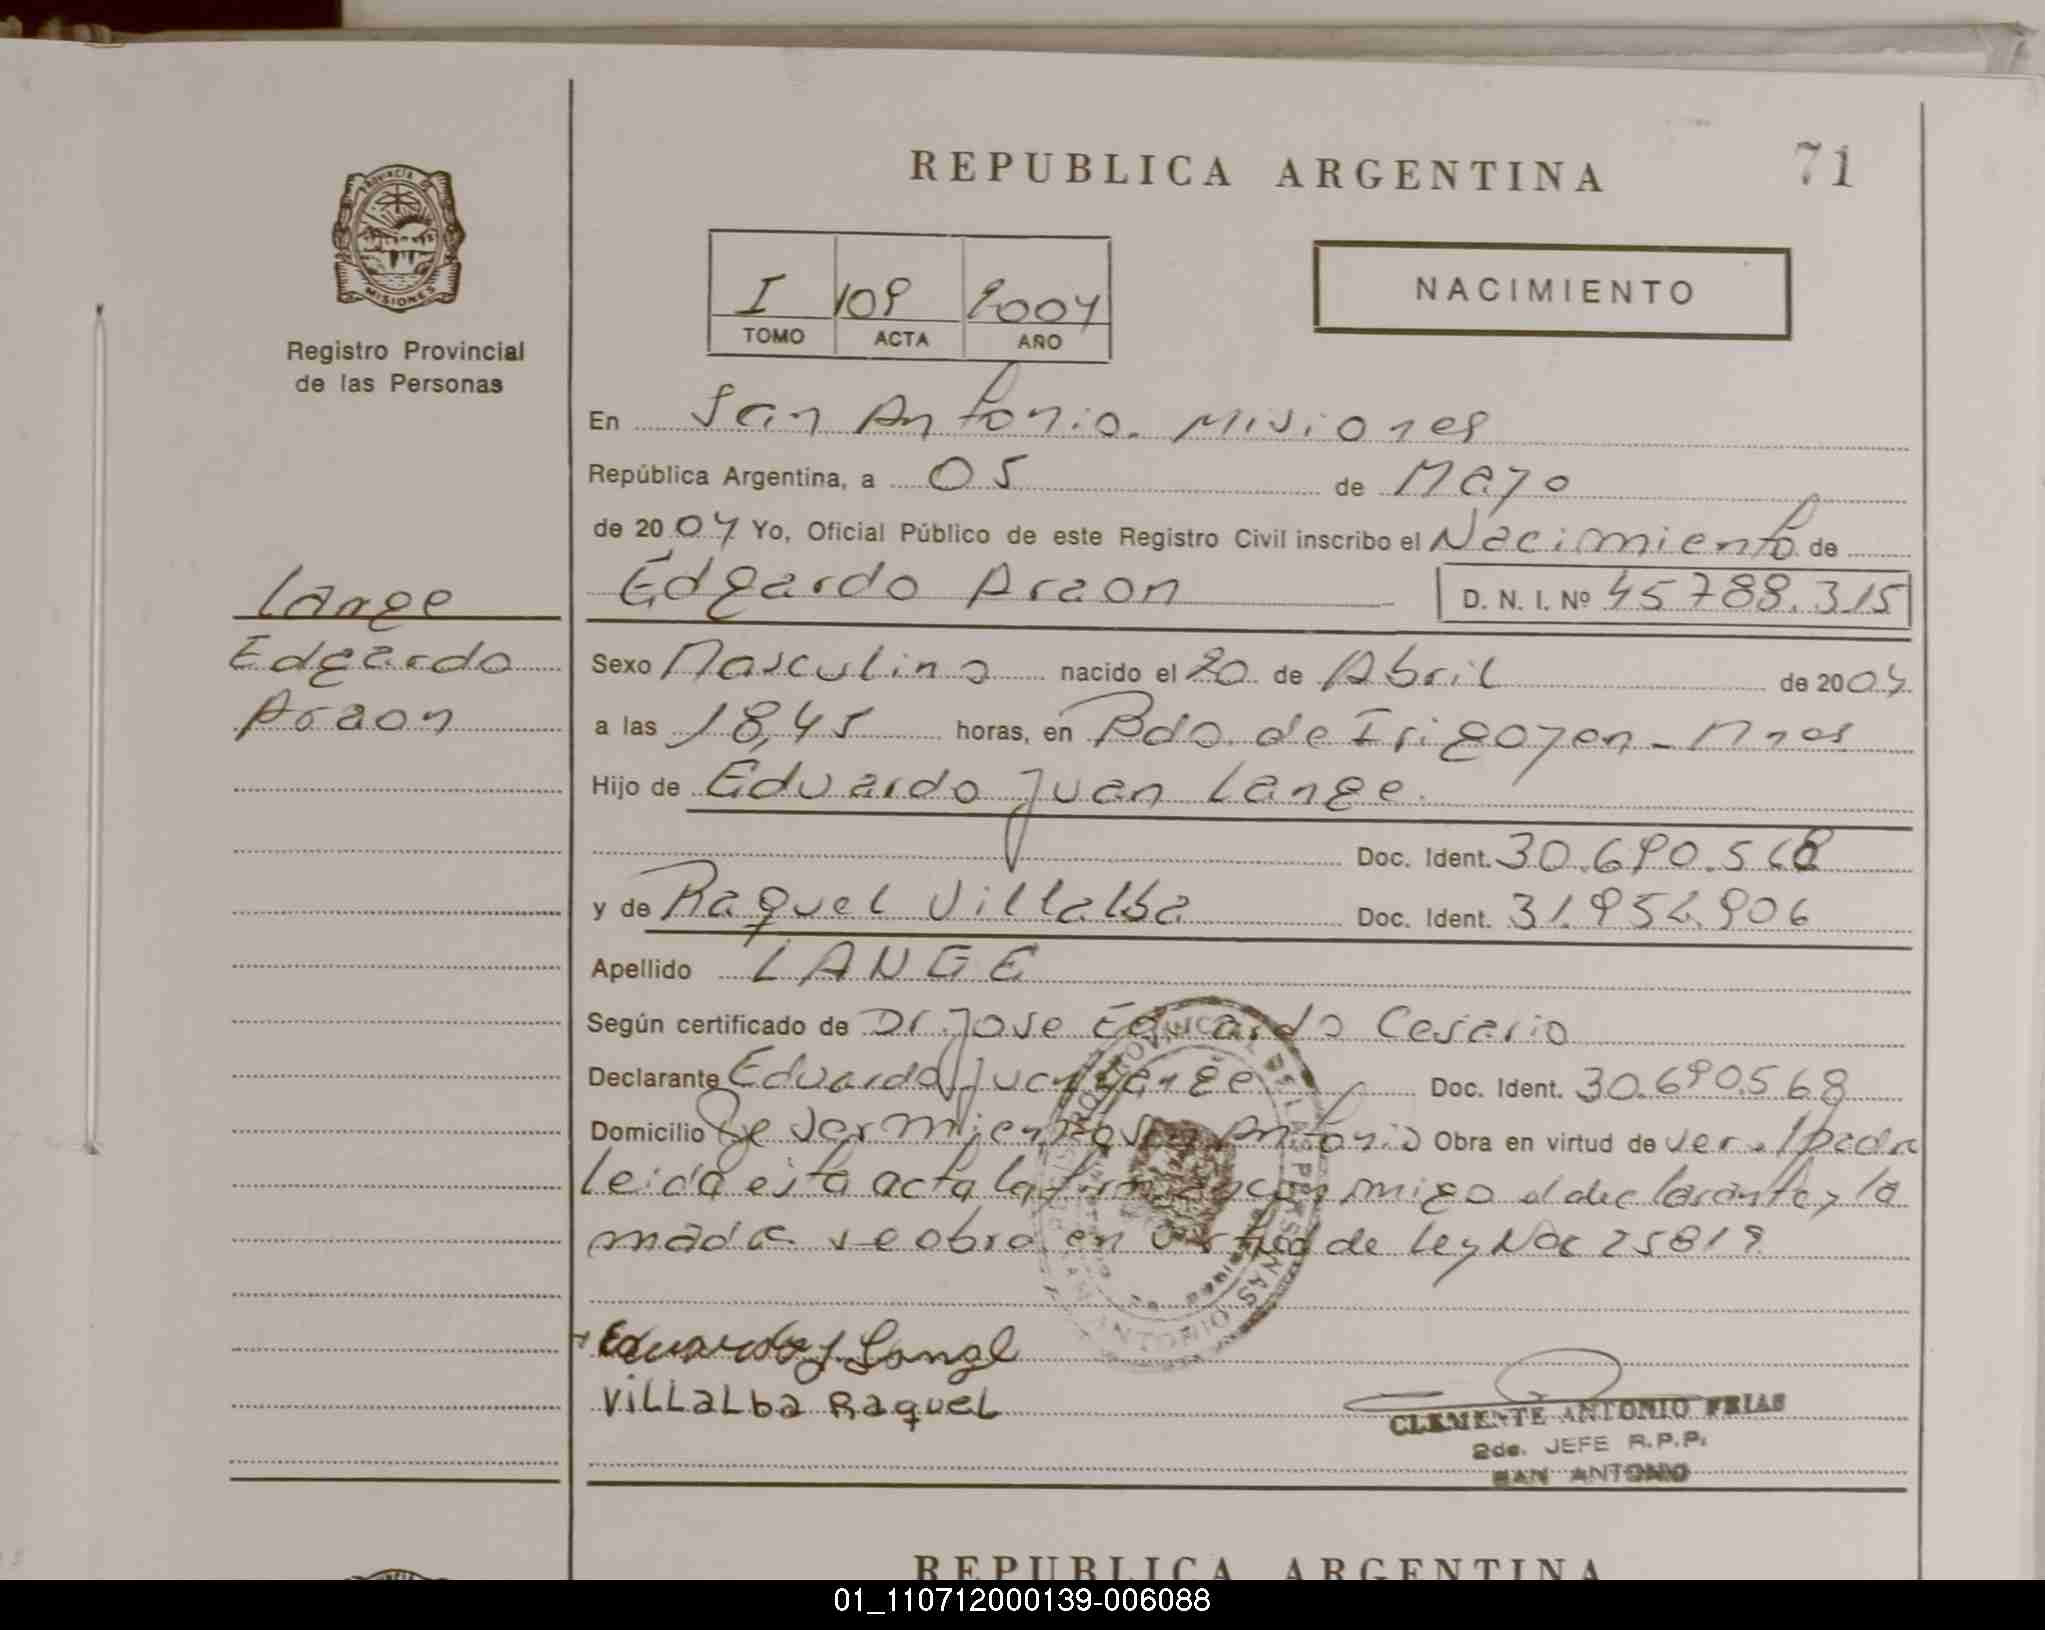 REPUBLICA ARGENTINA
71
PROVINCIA DE
MISIONES
Registro Provincial
de las Personas
I 109 2004
TOMO ACTA AÑO
NACIMIENTO
En San Antonio. Misiones
República Argentina, a 05 de Mayo
de 2004 Yo, Oficial Público de este Registro Civil inscribo el Nacimiento de
Edgardo Araon D. N. I. Nº 45788.315
Lange
Edgardo
Araon
Sexo Masculino nacido el 20 de Abril de 2004
a las 18,45 horas, en Bdo. de Irigoyen - Mnes
Hijo de Eduardo Juan Lange.
Doc. Ident. 30.690.568
y de Raquel Villalba Doc. Ident. 31.952.906
Apellido LANGE
Según certificado de Dr. Jose Eduardo Cesario
Declarante Eduardo Juan Lange Doc. Ident. 30.690.568
Domicilio San Antonio Obra en virtud de ser el padre
leida esta acta la firman conmigo el declarante y la
madre se obro en virtud de Ley Nac 25819
Eduardo J Lange
VILLALBA RAQUEL
CLEMENTE ANTONIO FRIAS
2do. JEFE R.P.P.
SAN ANTONIO
REPUBLICA ARGENTINA
01_110712000139-006088